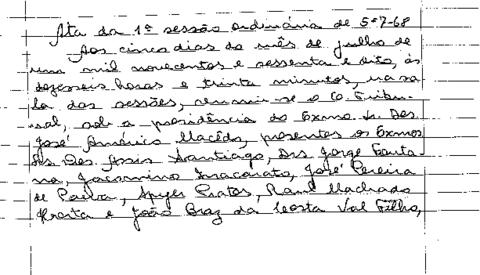 Ata da 1ª sessão ordinária de 5-7-68
Aos cinco dias do mês de julho de
um mil novecentos e sessenta e oito, às
dezesseis horas e trinta minutos, na sa-
la das sessões, reuniu-se o Co. Tribu-
nal, sob a presidência do Exmo. Sr. Des.
José Américo Macêdo, presentes os Exmos
Srs. Des. Assis Santiago, Drs. Jorge Fonta-
na, Jacomino Inacarato, José Pereira
de Paiva, Apyes Prates, Raul Machado
Horta e João Braz da Costa Val Filho,